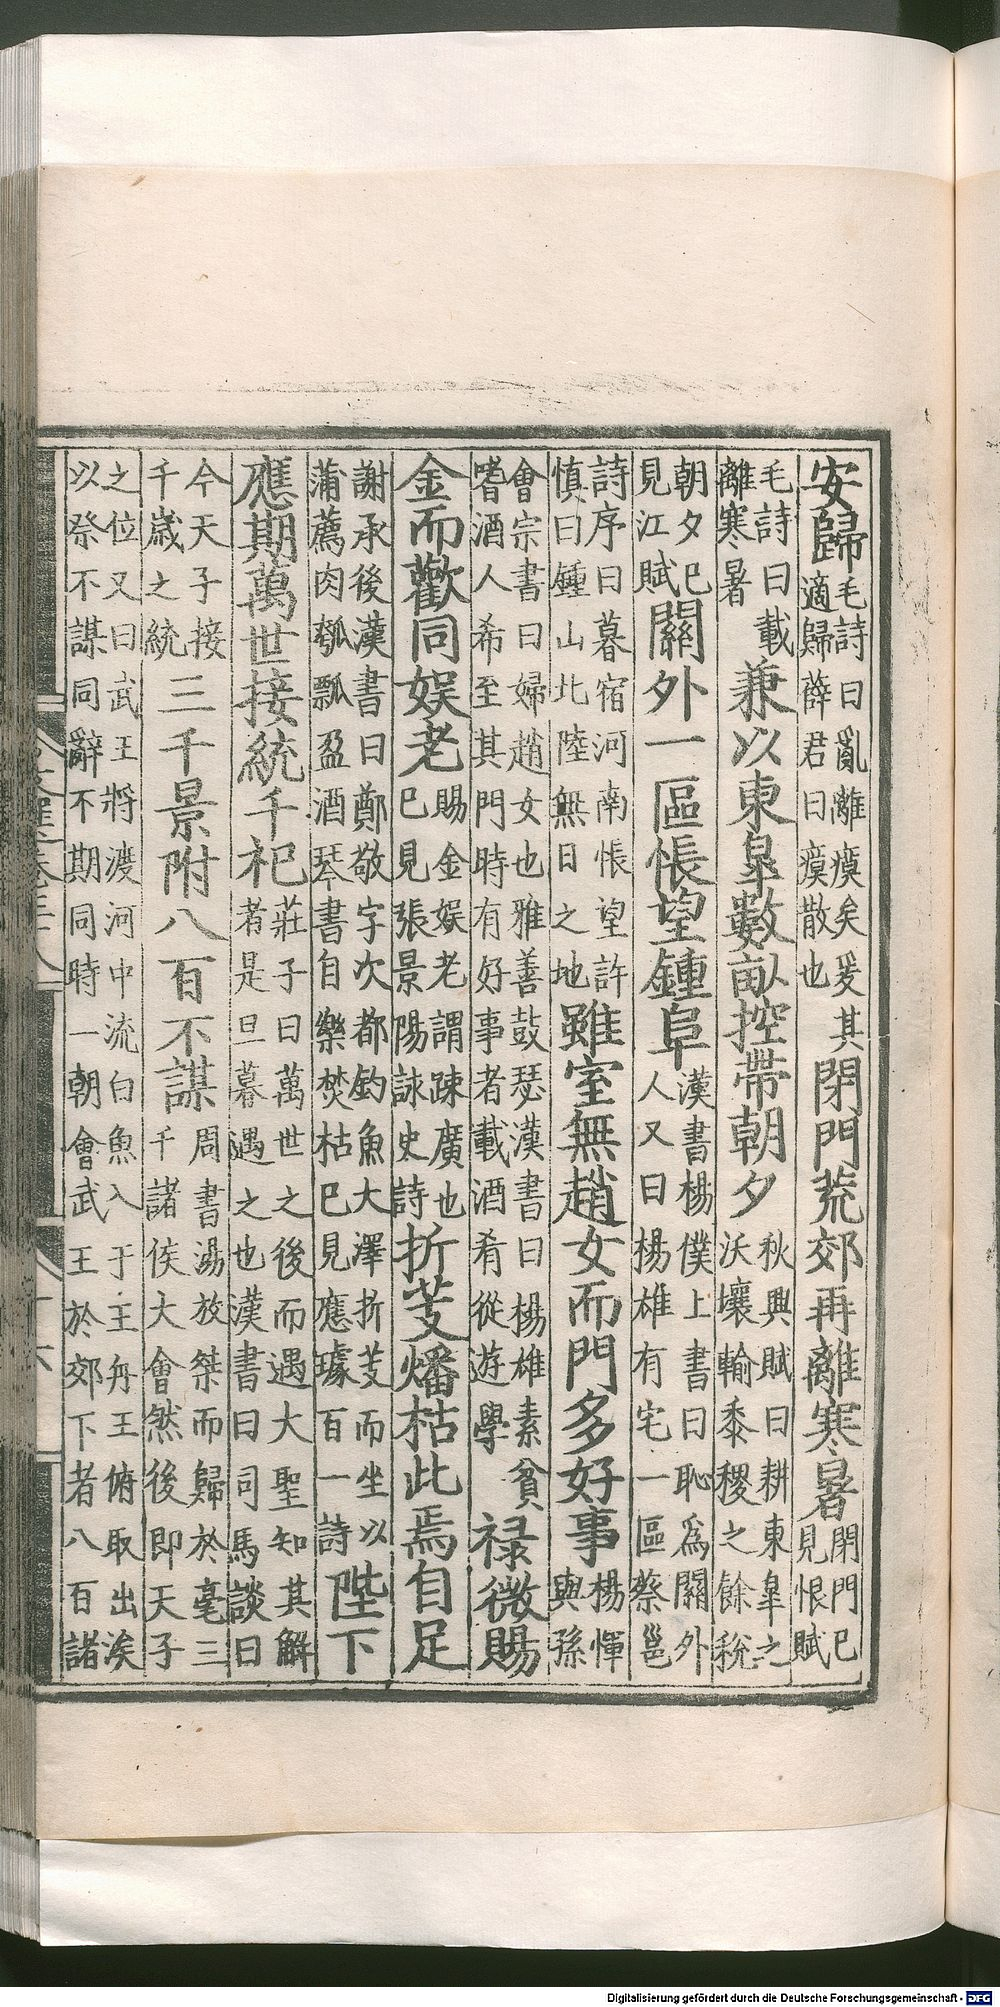 安歸毛詩曰亂離瘼矣爰其適歸薛君曰瘼散也閉門荒郊再離寒暑閉門已見恨賦
毛詩曰載離寒暑兼以東皐數畝控帶朝夕秋興賦曰耕東皐之沃壤輸黍稷之餘稅
朝夕已見江賦關外一區悵望鍾阜漢書楊僕上書曰恥爲關外人又曰楊雄有宅一區蔡邕
詩序曰暮宿河南悵望許慎曰鍾山北陸無日之地雖室無趙女而門多好事楊惲與孫
會宗書曰婦趙女也雅善鼓瑟漢書曰楊雄素貧嗜酒人希至其門時有好事者載酒肴從遊學禄微賜
金而歡同娛老賜金娛老謂疎廣也已見張景陽詠史詩折芰燔枯此焉自足
謝承後漢書曰鄭敬字次都釣魚大澤折芰而坐以蒲薦肉瓠瓢盈酒琴書自樂焚枯已見應璩百一詩陛下
應期萬世接統千祀莊子曰萬世之後而遇大聖知其解者是旦暮遇之也漢書曰司馬談曰
今天子接千歲之統三千景附八百不謀周書湯放桀而歸於亳三千諸侯大會然後即天子
之位又曰武王將渡河中流白魚入于王舟王俯取出涘以祭不謀同辭不期同時一朝會武王於郊下者八百諸
Digitalisierung gefördert durch die Deutsche Forschungsgemeinschaft - DFG